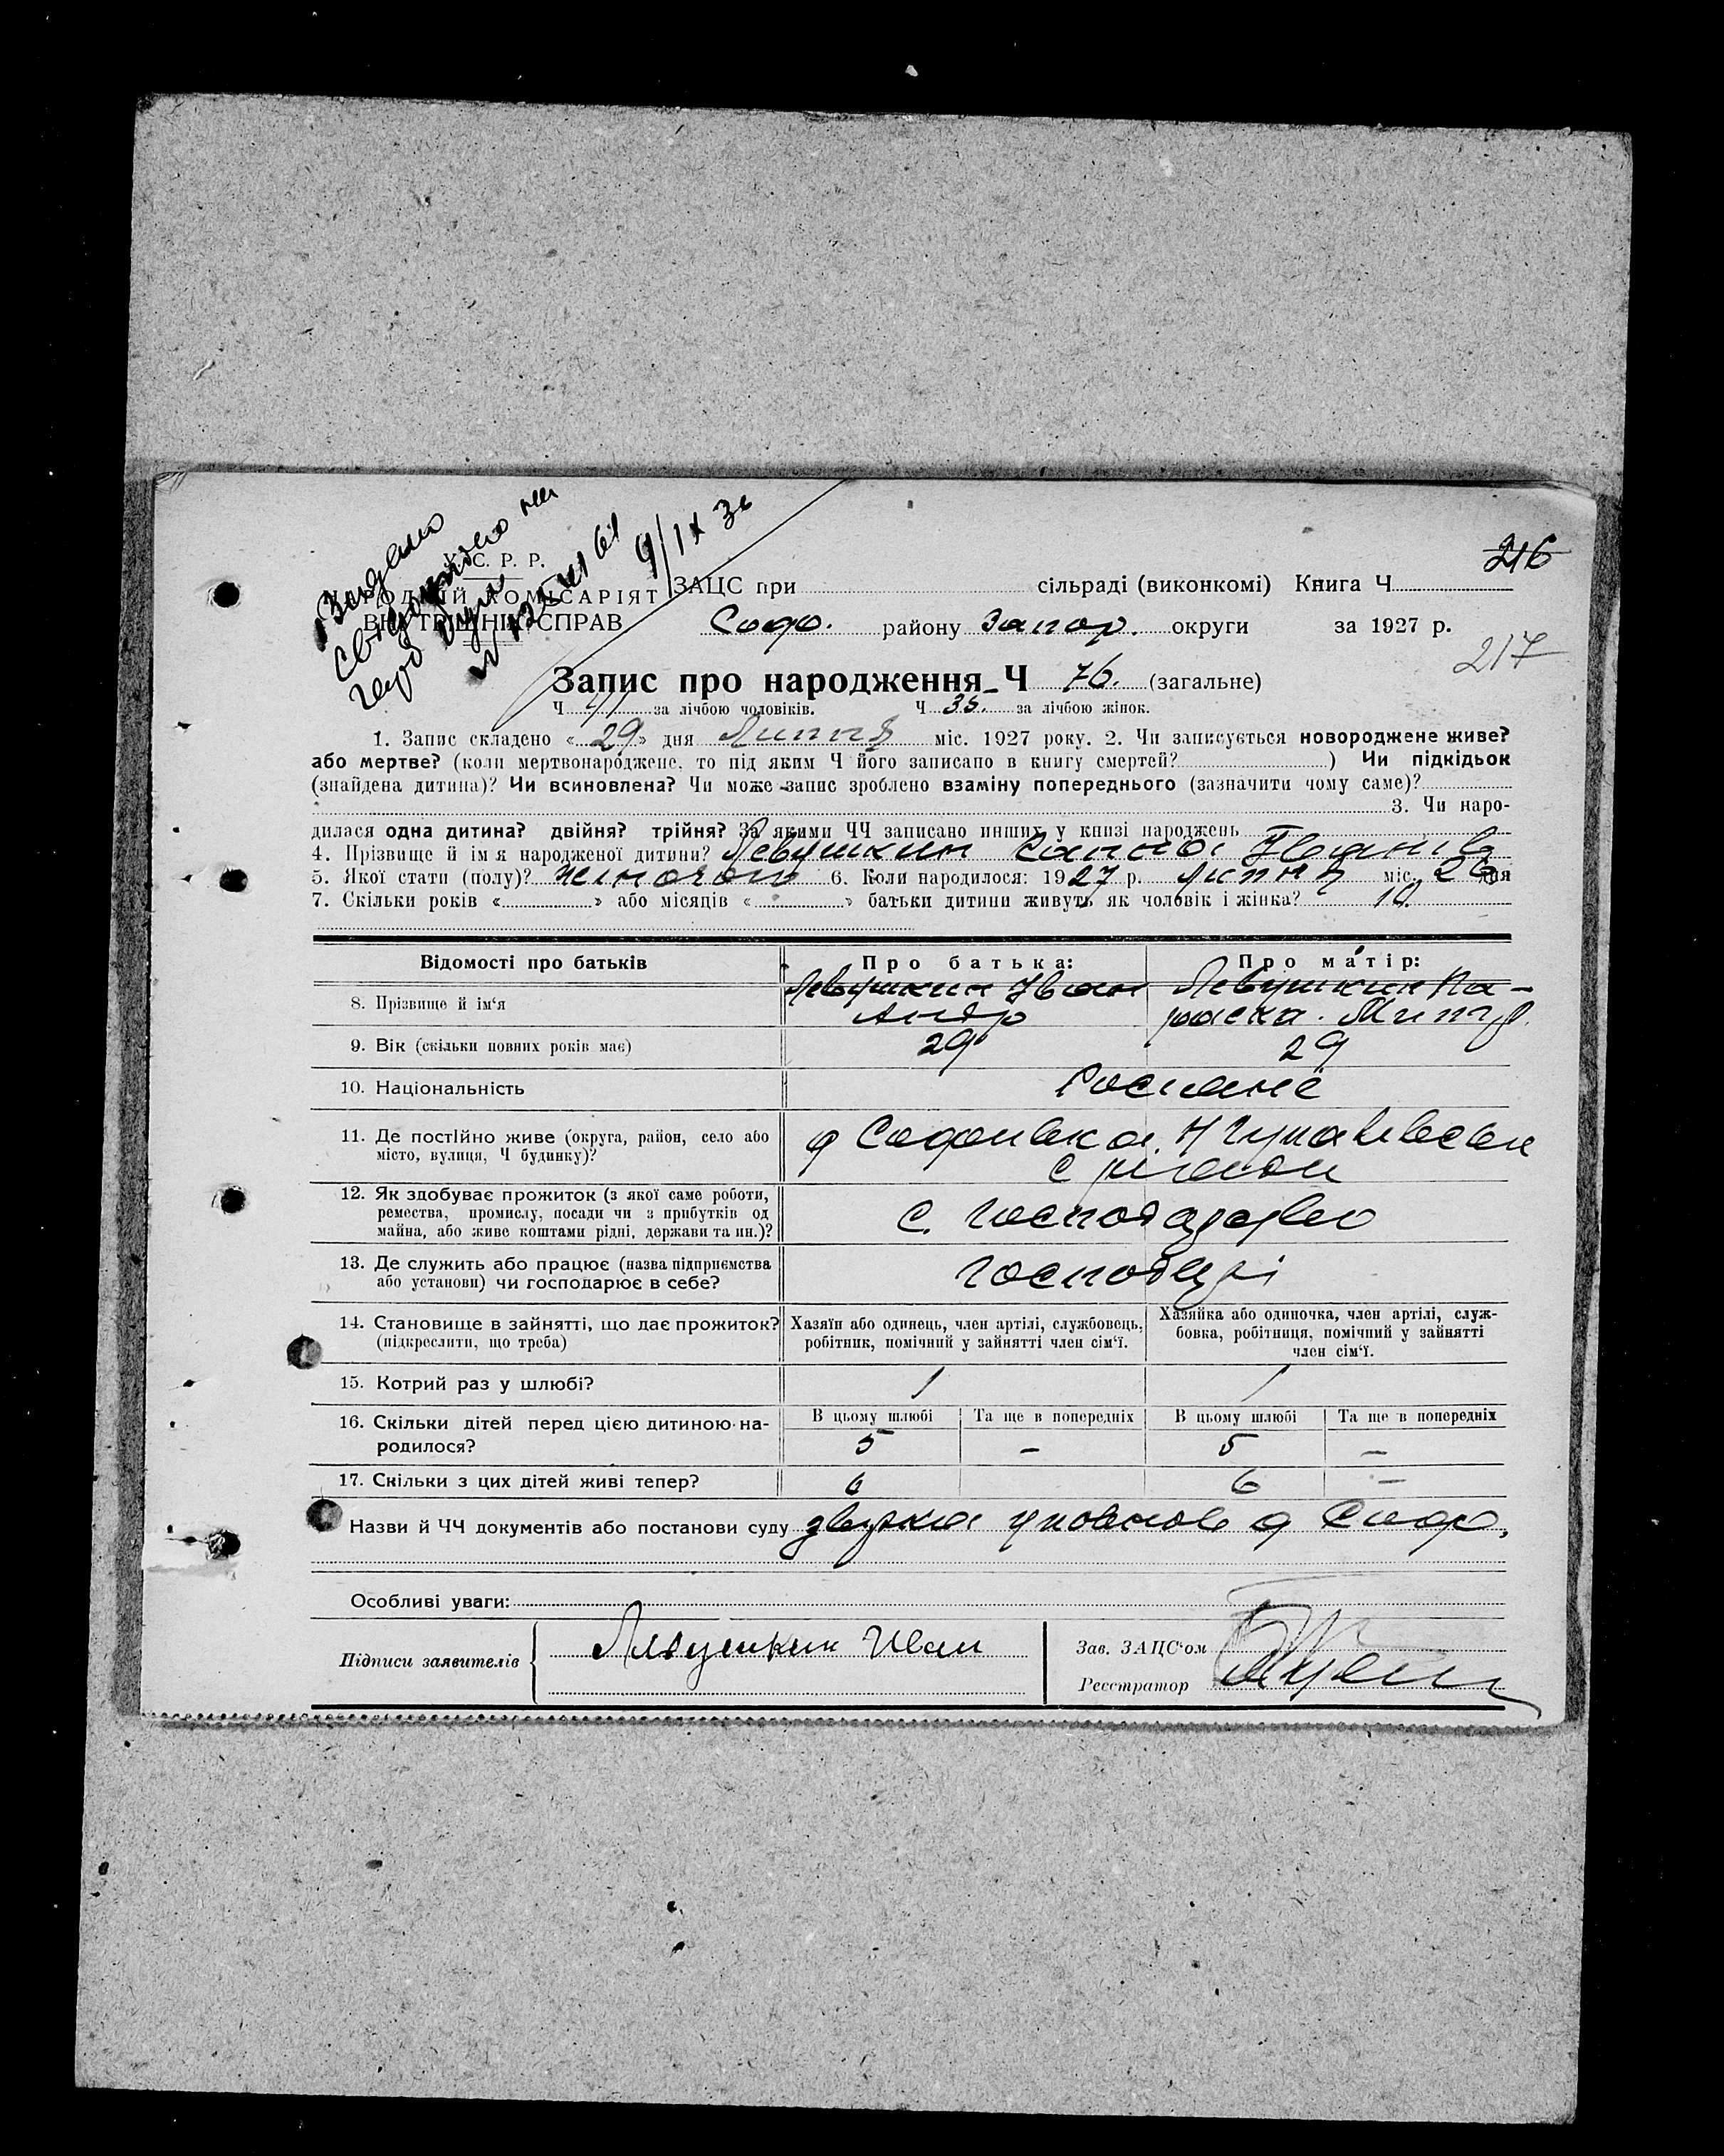 216
Видано
С. Р. Р.
9/IX 36
НАРОДНІЙ КОМІСАРІЯТ
ВНУТРІШНІХ СПРАВ
ЗАЦС при сільраді (виконкомі) Книга Ч
Софо. району Запор. округи за 1927 р.
217
Запис про народження Ч 76. (загальне)
Ч 41 за лічбою чоловіків. Ч 35. за лічбою жінок.
1. Запис складено « 29 » дня Липня міс. 1927 року. 2. Чи записується новороджене живе?
або мертве? (коли мертвонароджене, то під яким Ч його записано в книгу смертей? ) Чи підкідьок
(знайдена дитина)? Чи всиновлена? Чи може запис зроблено взаміну попереднього (зазначити чому саме)?
3. Чи наро-
дилася одна дитина? двійня? трійня? За якими ЧЧ записано инших у книзі народжень
4. Прізвище й ім я народженої дитини? Левушкин Іванів
5. Якої стати (полу)? жіночого 6. Коли народилося: 1927 р. липня міс. 26 дня
7. Скільки років « » або місяців « » батьки дитини живуть як чоловік і жінка? 10
Відомості про батьків Про батька: Про матір:
8. Прізвище й ім'я Левушкин Іван Левушкин Па-
Андр раска. Митр.
9. Вік (скільки повних років має) 29 29
10. Національність Росияне
11. Де постійно живе (округа, район, село або
місто, вулиця, Ч будинку)? Софиевка
12. Як здобуває прожиток (з якої саме роботи,
ремества, промислу, посади чи з прибутків од
майна, або живе коштами рідні, держави та ин.)? с. господарство
13. Де служить або працює (назва підприємства
або установи) чи господарює в себе? господарі
14. Становище в зайнятті, що дає прожиток?
(підкреслити, що треба)
Хазяїн або одинець, член артілі, службовець,
робітник, помічний у зайнятті член сім'ї.
Хазяйка або одиночка, член артілі, служ-
бовка, робітниця, помічний у зайнятті
член сім'ї.
15. Котрий раз у шлюбі? 1 1
16. Скільки дітей перед цією дитиною на-
родилося?
В цьому шлюбі Та ще в попередніх В цьому шлюбі Та ще в попередніх
5 – 5 –
17. Скільки з цих дітей живі тепер? 6 6 –
Назви й ЧЧ документів або постанови суду
Особливі уваги:
Підписи заявителів Левушкин Иван
Зав. ЗАЦС'ом
Реєстратор